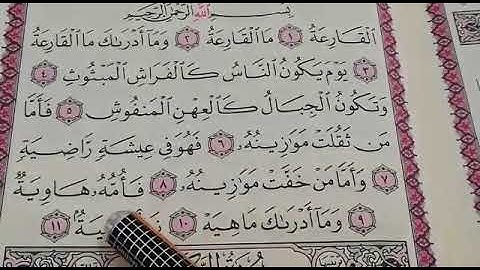 بِسْمِ اللَّهِ الرَّحْمَٰنِ الرَّحِيمِ
الْقَارِعَةُ ١ مَا الْقَارِعَةُ ٢ وَمَا أَدْرَاكَ مَا الْقَارِعَةُ
٣ يَوْمَ يَكُونُ النَّاسُ كَالْفَرَاشِ الْمَبْثُوثِ ٤
وَتَكُونُ الْجِبَالُ كَالْعِهْنِ الْمَنْفُوشِ ٥ فَأَمَّا
مَنْ ثَقُلَتْ مَوَازِينُهُ ٦ فَهُوَ فِي عِيشَةٍ رَاضِيَةٍ
٧ وَأَمَّا مَنْ خَفَّتْ مَوَازِينُهُ ٨ فَأُمُّهُ هَاوِيَةٌ
٩ وَمَا أَدْرَاكَ مَا هِيَهْ ١٠ ١١